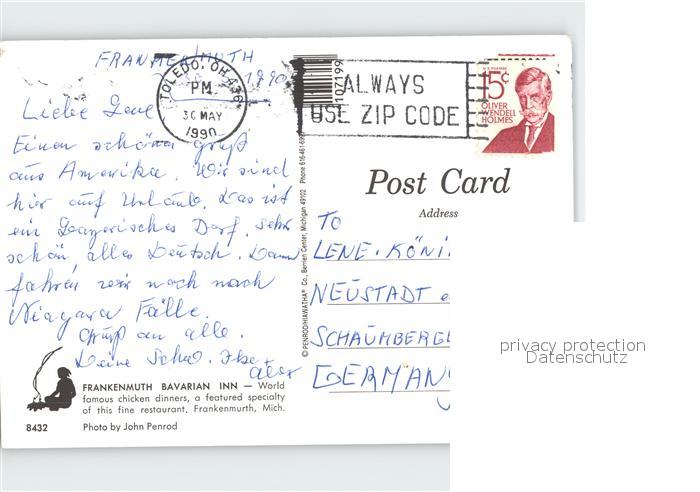 FRANKENMUTH
1990
TOLEDO, OH 436
PM
30 MAY
1990
ALWAYS
USE ZIP CODE
U.S. POSTAGE
15¢
OLIVER
WENDELL
HOLMES
107199
Liebe Lene
Einen schönen Gruß
aus Amerika. Wir sind
hier auf Urlaub. Das ist
ein Bayerisches Dorf. Sehr
schön alles Deutsch. Dann
fahren wir noch nach
Niagara Fälle.
Gruß an alle.
Deine Schw. Ilse +
Alex
Post Card
Address
TO
LENE KÖNI
NEUSTADT
SCHAUMBERGE
GERMANY
© PENROD/HIAWATHA® Co., Berrien Center, Michigan 49102 Phone 616-461-699
FRANKENMUTH BAVARIAN INN — World
famous chicken dinners, a featured specialty
of this fine restaurant, Frankenmuth, Mich.
8432 Photo by John Penrod
privacy protection
Datenschutz